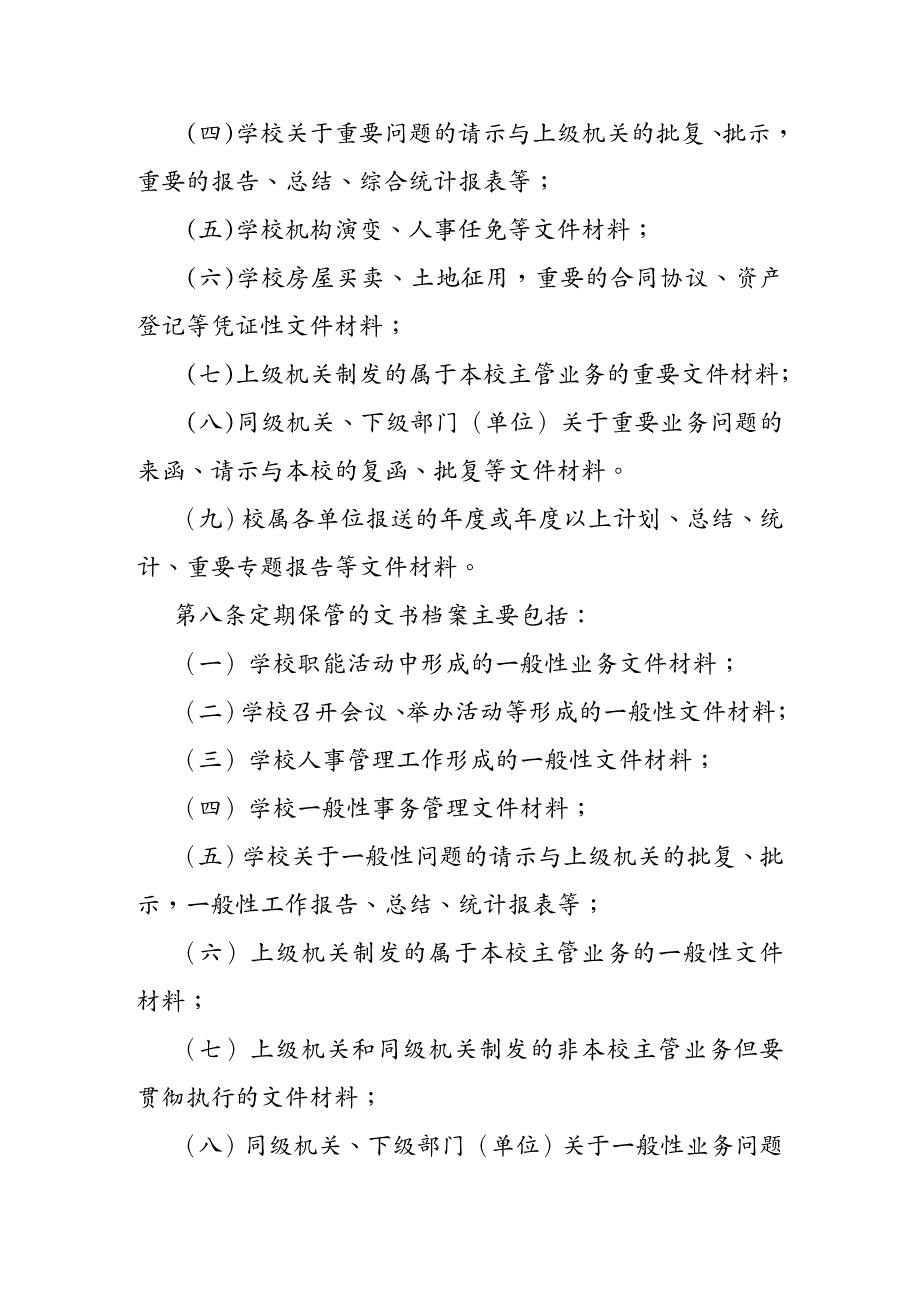 (四)学校关于重要问题的请示与上级机关的批复、批示，
重要的报告、总结、综合统计报表等；
(五)学校机构演变、人事任免等文件材料；
(六)学校房屋买卖、土地征用，重要的合同协议、资产
登记等凭证性文件材料；
(七)上级机关制发的属于本校主管业务的重要文件材料；
(八)同级机关、下级部门（单位）关于重要业务问题的
来函、请示与本校的复函、批复等文件材料。
（九）校属各单位报送的年度或年度以上计划、总结、统
计、重要专题报告等文件材料。
第八条定期保管的文书档案主要包括：
（一）学校职能活动中形成的一般性业务文件材料；
（二）学校召开会议、举办活动等形成的一般性文件材料；
（三）学校人事管理工作形成的一般性文件材料；
（四）学校一般性事务管理文件材料；
（五）学校关于一般性问题的请示与上级机关的批复、批
示，一般性工作报告、总结、统计报表等；
（六）上级机关制发的属于本校主管业务的一般性文件
材料；
（七）上级机关和同级机关制发的非本校主管业务但要
贯彻执行的文件材料；
（八）同级机关、下级部门（单位）关于一般性业务问题